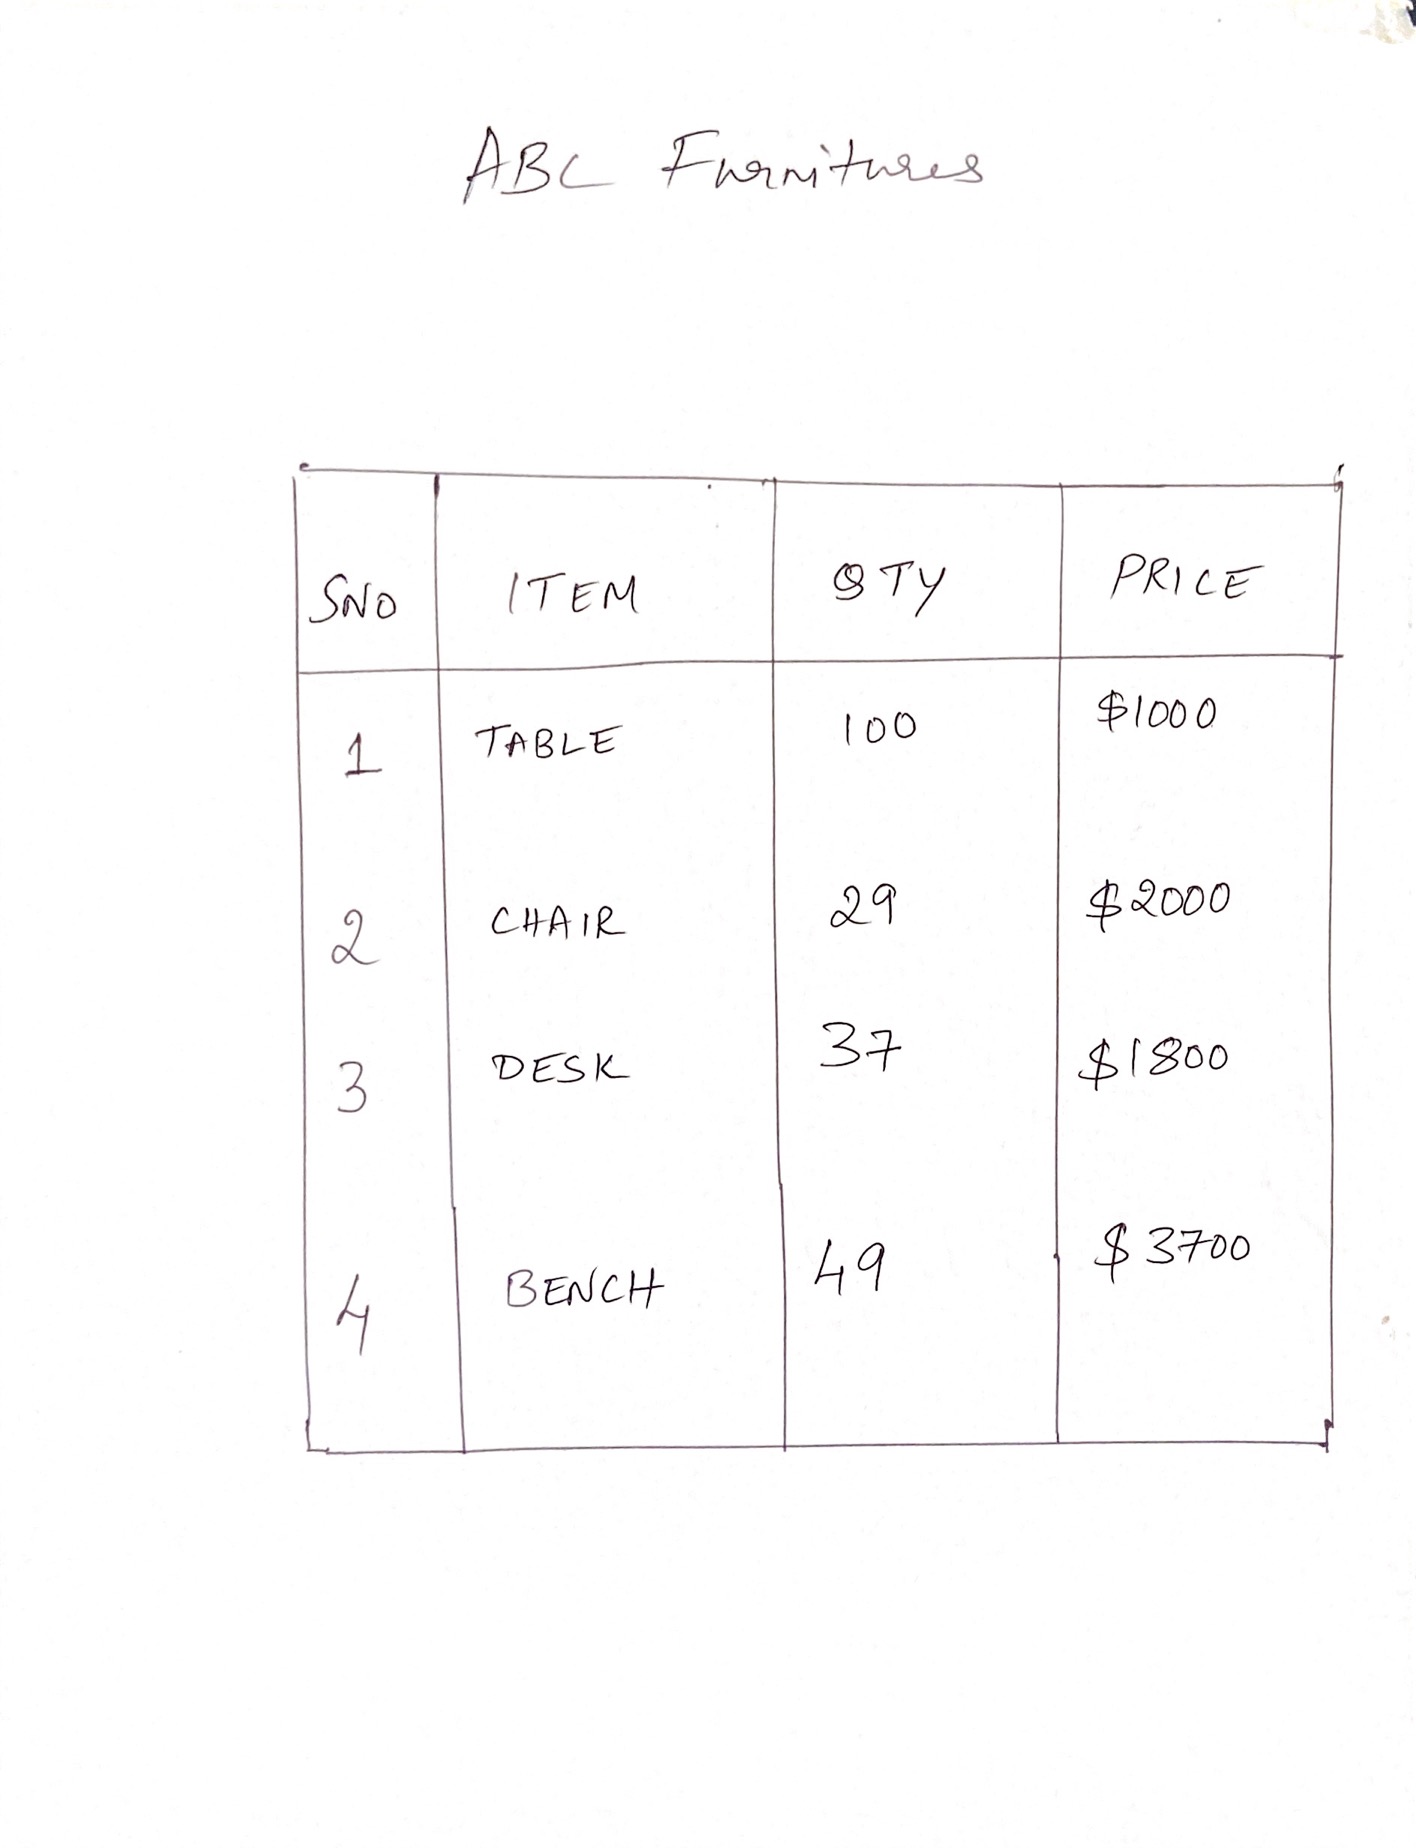 ABC Furnitures
SNO ITEM QTY PRICE
1 TABLE 100 $1000
2 CHAIR 29 $2000
3 DESK 37 $1800
4 BENCH 49 $3700